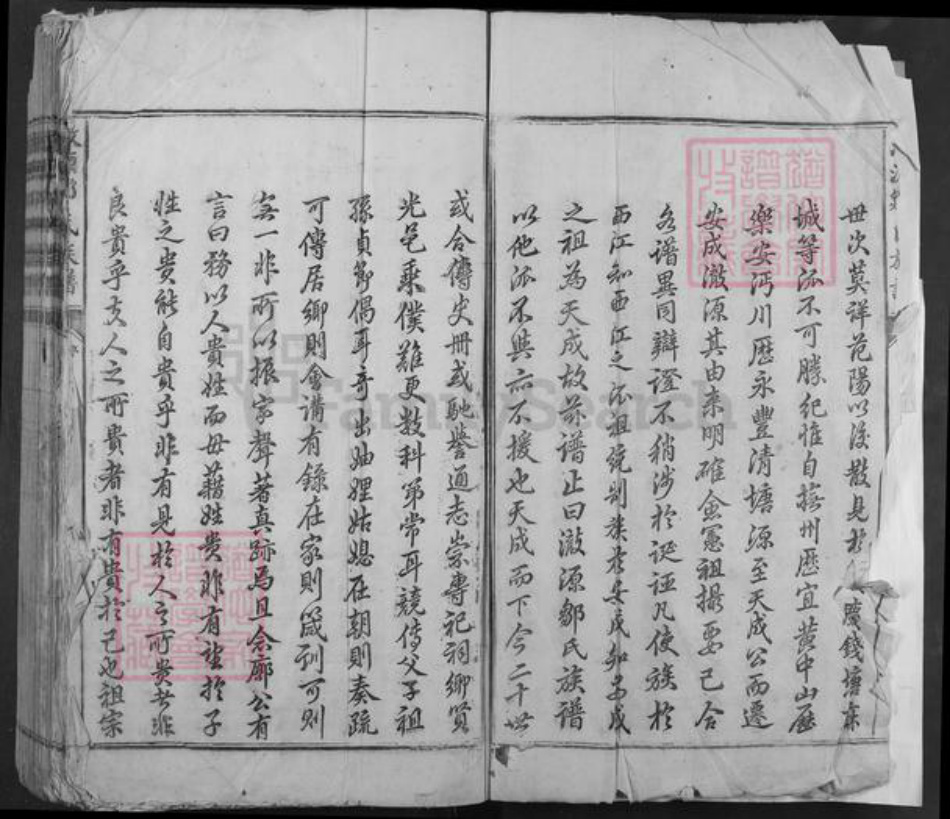 世次莫詳范陽以後散見於慶錢塘京
城等派不可勝紀惟自撫州歷宜黃中山歷
樂安沔川歷永豐清塘源至天成公而遷
安成澉源其由来明確僉憲祖撮要已合
各譜異同辯證不稍涉於誕誣凡使族於
西江知西江之派祖統別族於安成知安成
之祖為天成故茲譜止曰澉源鄒氏族譜
以他派不與亦不援也天成而下今二十世
或合傳史冊或馳譽通志崇專祀祠鄉賢
光邑乘僕難更数科第常耳競傳父子祖
孫貞節偶耳奇出妯娌姑媳在朝則奏疏
可傳居鄉則會講有錄在家則箴列可則
無一非所以振家聲著真跡焉且念廓公有
言曰務以人貴姓而毋藉姓貴非有望於子
姓之貴能自貴乎非有見於人之所貴者非
良貴乎夫人之所貴者非有貴於己也祖宗
FamilySearch